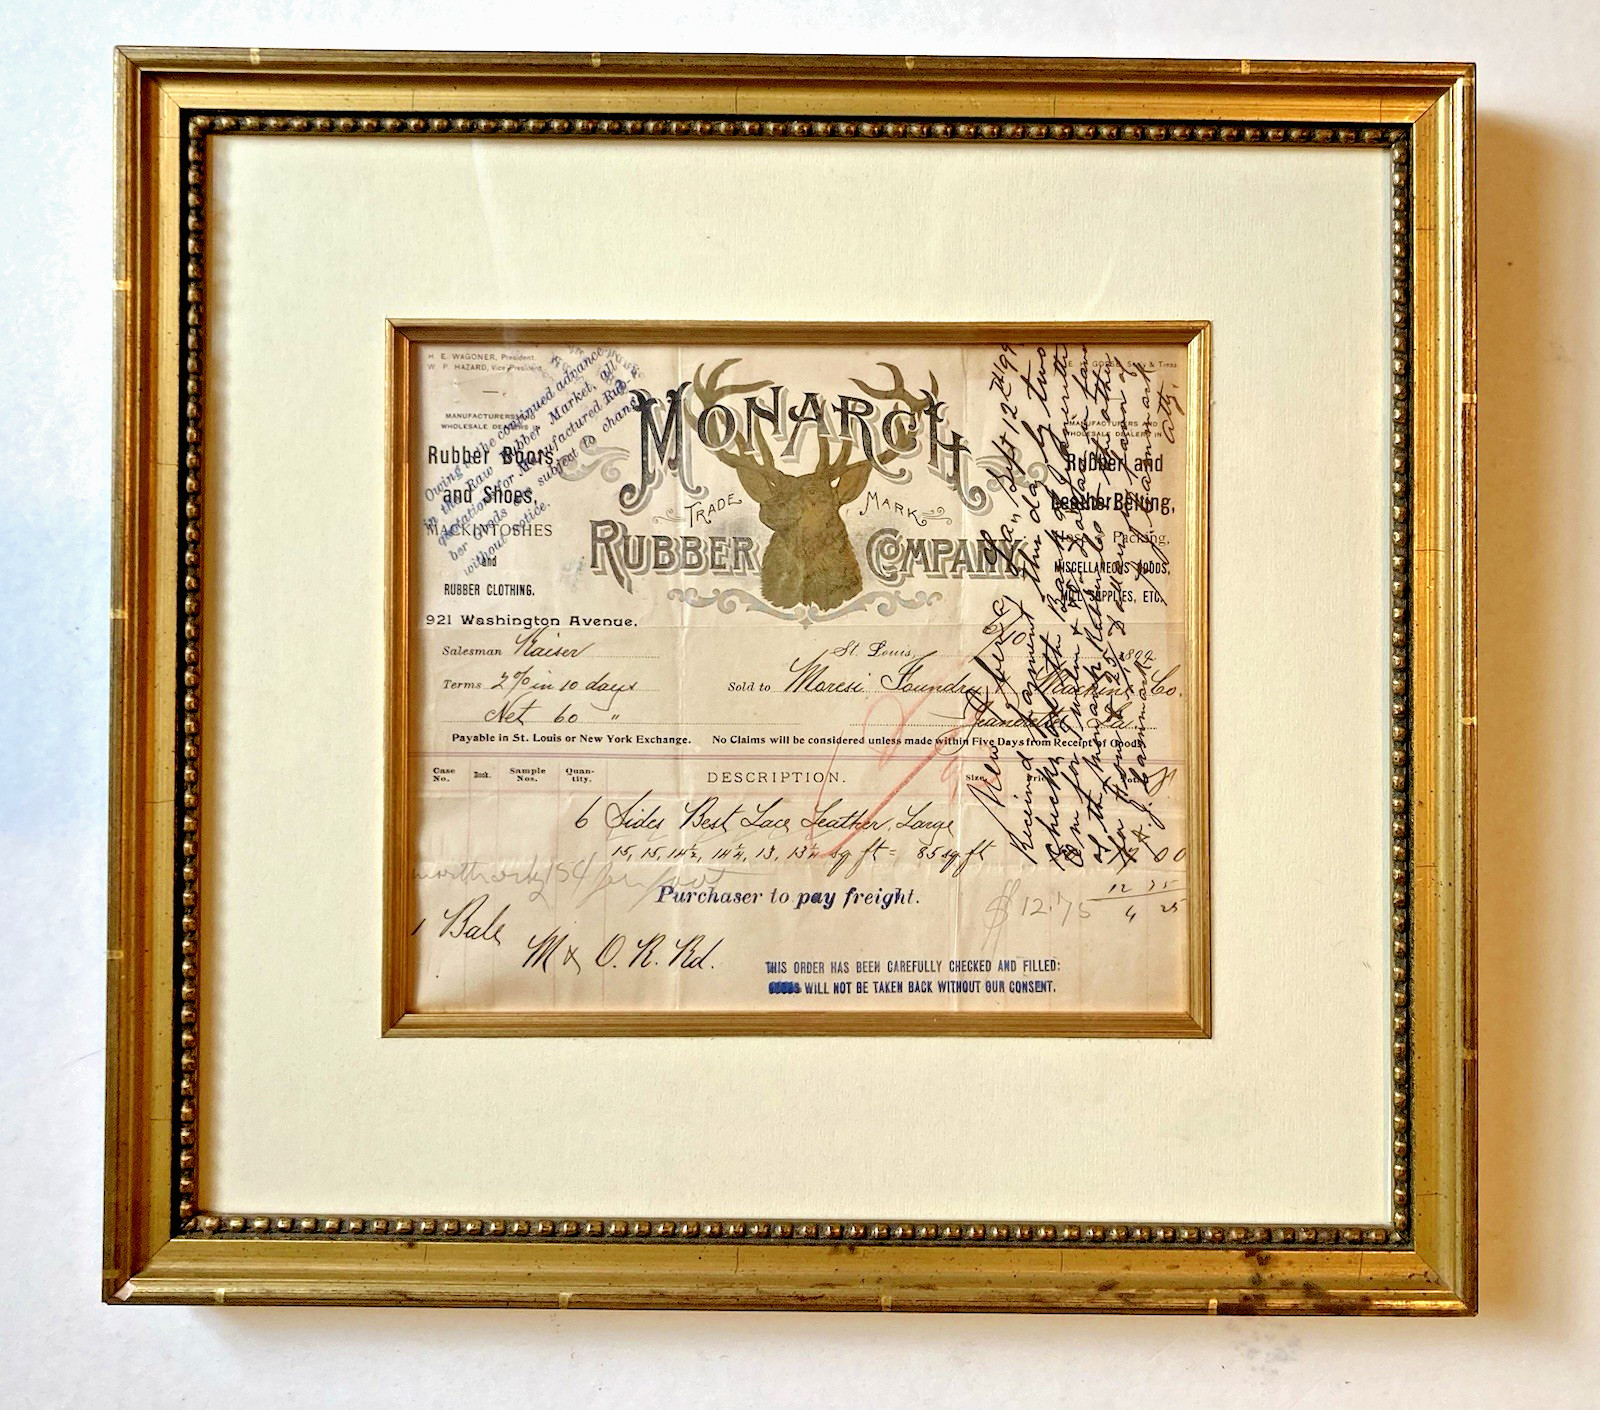 H. E. WAGONER, President.
W. P. HAZARD, Vice President.
MANUFACTURERS AND
WHOLESALE DEALERS IN
Rubber Boots
and Shoes,
MACKINTOSHES
and
RUBBER CLOTHING.
921 Washington Avenue.
Owing to the continued advance
in the Raw Rubber Market, all
quotations for Manufactured Rub-
ber Goods are subject to change
without notice.
MONARCH
TRADE MARK
RUBBER COMPANY
Sec'y & Treas
MANUFACTURERS AND
WHOLESALE DEALERS IN
Rubber and
Leather Belting,
Hose, Packing,
MISCELLANEOUS GOODS,
MILL SUPPLIES, ETC.
Salesman Kaiser
St. Louis, 6/10 1899
Terms 2% in 10 days
Sold to Moresi Foundry & Machine Co.
Net 60 "
Jeanerette La.
Payable in St. Louis or New York Exchange. No Claims will be considered unless made within Five Days from Receipt of Goods
Case No. Book. Sample Nos. Quan-tity. DESCRIPTION. Size. Price
6 Sides Best Lace Leather, Large
15, 15, 14½, 14¼, 13, 13¼ sq ft = 85 sq ft
17 00
per foot
Purchaser to pay freight.
$12.75
12 75
4 25
1 Bale
M & O. R. Rd.
THIS ORDER HAS BEEN CAREFULLY CHECKED AND FILLED:
GOODS WILL NOT BE TAKEN BACK WITHOUT OUR CONSENT.
New Iberia, La, Sept 12th 99
Received payment this day by two
checks, both Bank of Jeanerette
of the Monarch Rubber Co